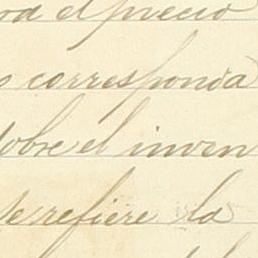 el precio
corresponda
sobre el inven
se refiere la